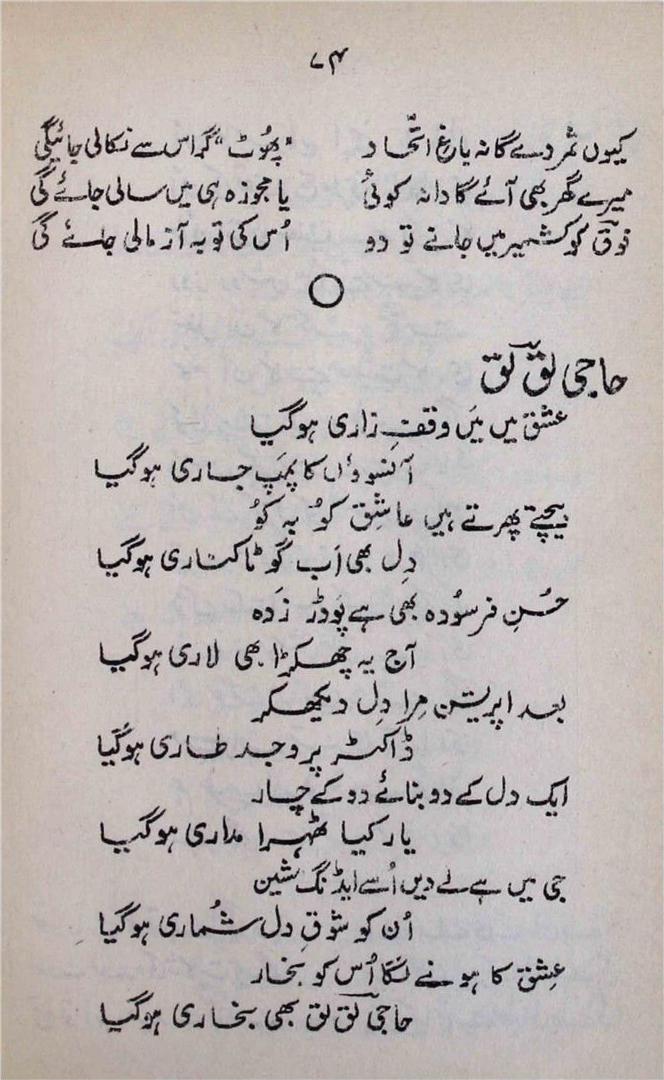 ۷۴
کیوں ثمر دے گا نہ باغِ اتّحاد "پھوُٹ" گر اس سے نکالی جائیگی
میرے گھر بھی آئے گا دانہ کوئی یا مجوزہ ہی میں سالی جائے گی
فوقؔ کو کشمیر میں جانے تو دو اُس کی توبہ آزمالی جائے گی
حاجی لق لقؔ
عشق میں مَیں وقفِ زاری ہوگیا
آنسوؤں کا پمپ جاری ہوگیا
بیچتے پھرتے ہیں عاشق کوُ بہ کوُ
دِل بھی اَب گو ٹاکناری ہوگیا
حُسنِ فرسوُدہ بھی ہے پوَڈر زَدہ
آج یہ چھکڑا بھی لاری ہوگیا
بعد اپریشن مِرا دِل دیکھکر
ڈاکٹر پر وجد طاری ہوگیا
ایک دل کے دو بنائے دو کے چار
یار کیا ٹھہرا مداری ہوگیا
جی میں ہے لے دیں اُسے ایڈنگ مشین
اُن کو شوقِ دل شُماری ہوگیا
عِشق کا ہونے لگا اُس کو بخار
حاجی لق لق بھی بخاری ہوگیا